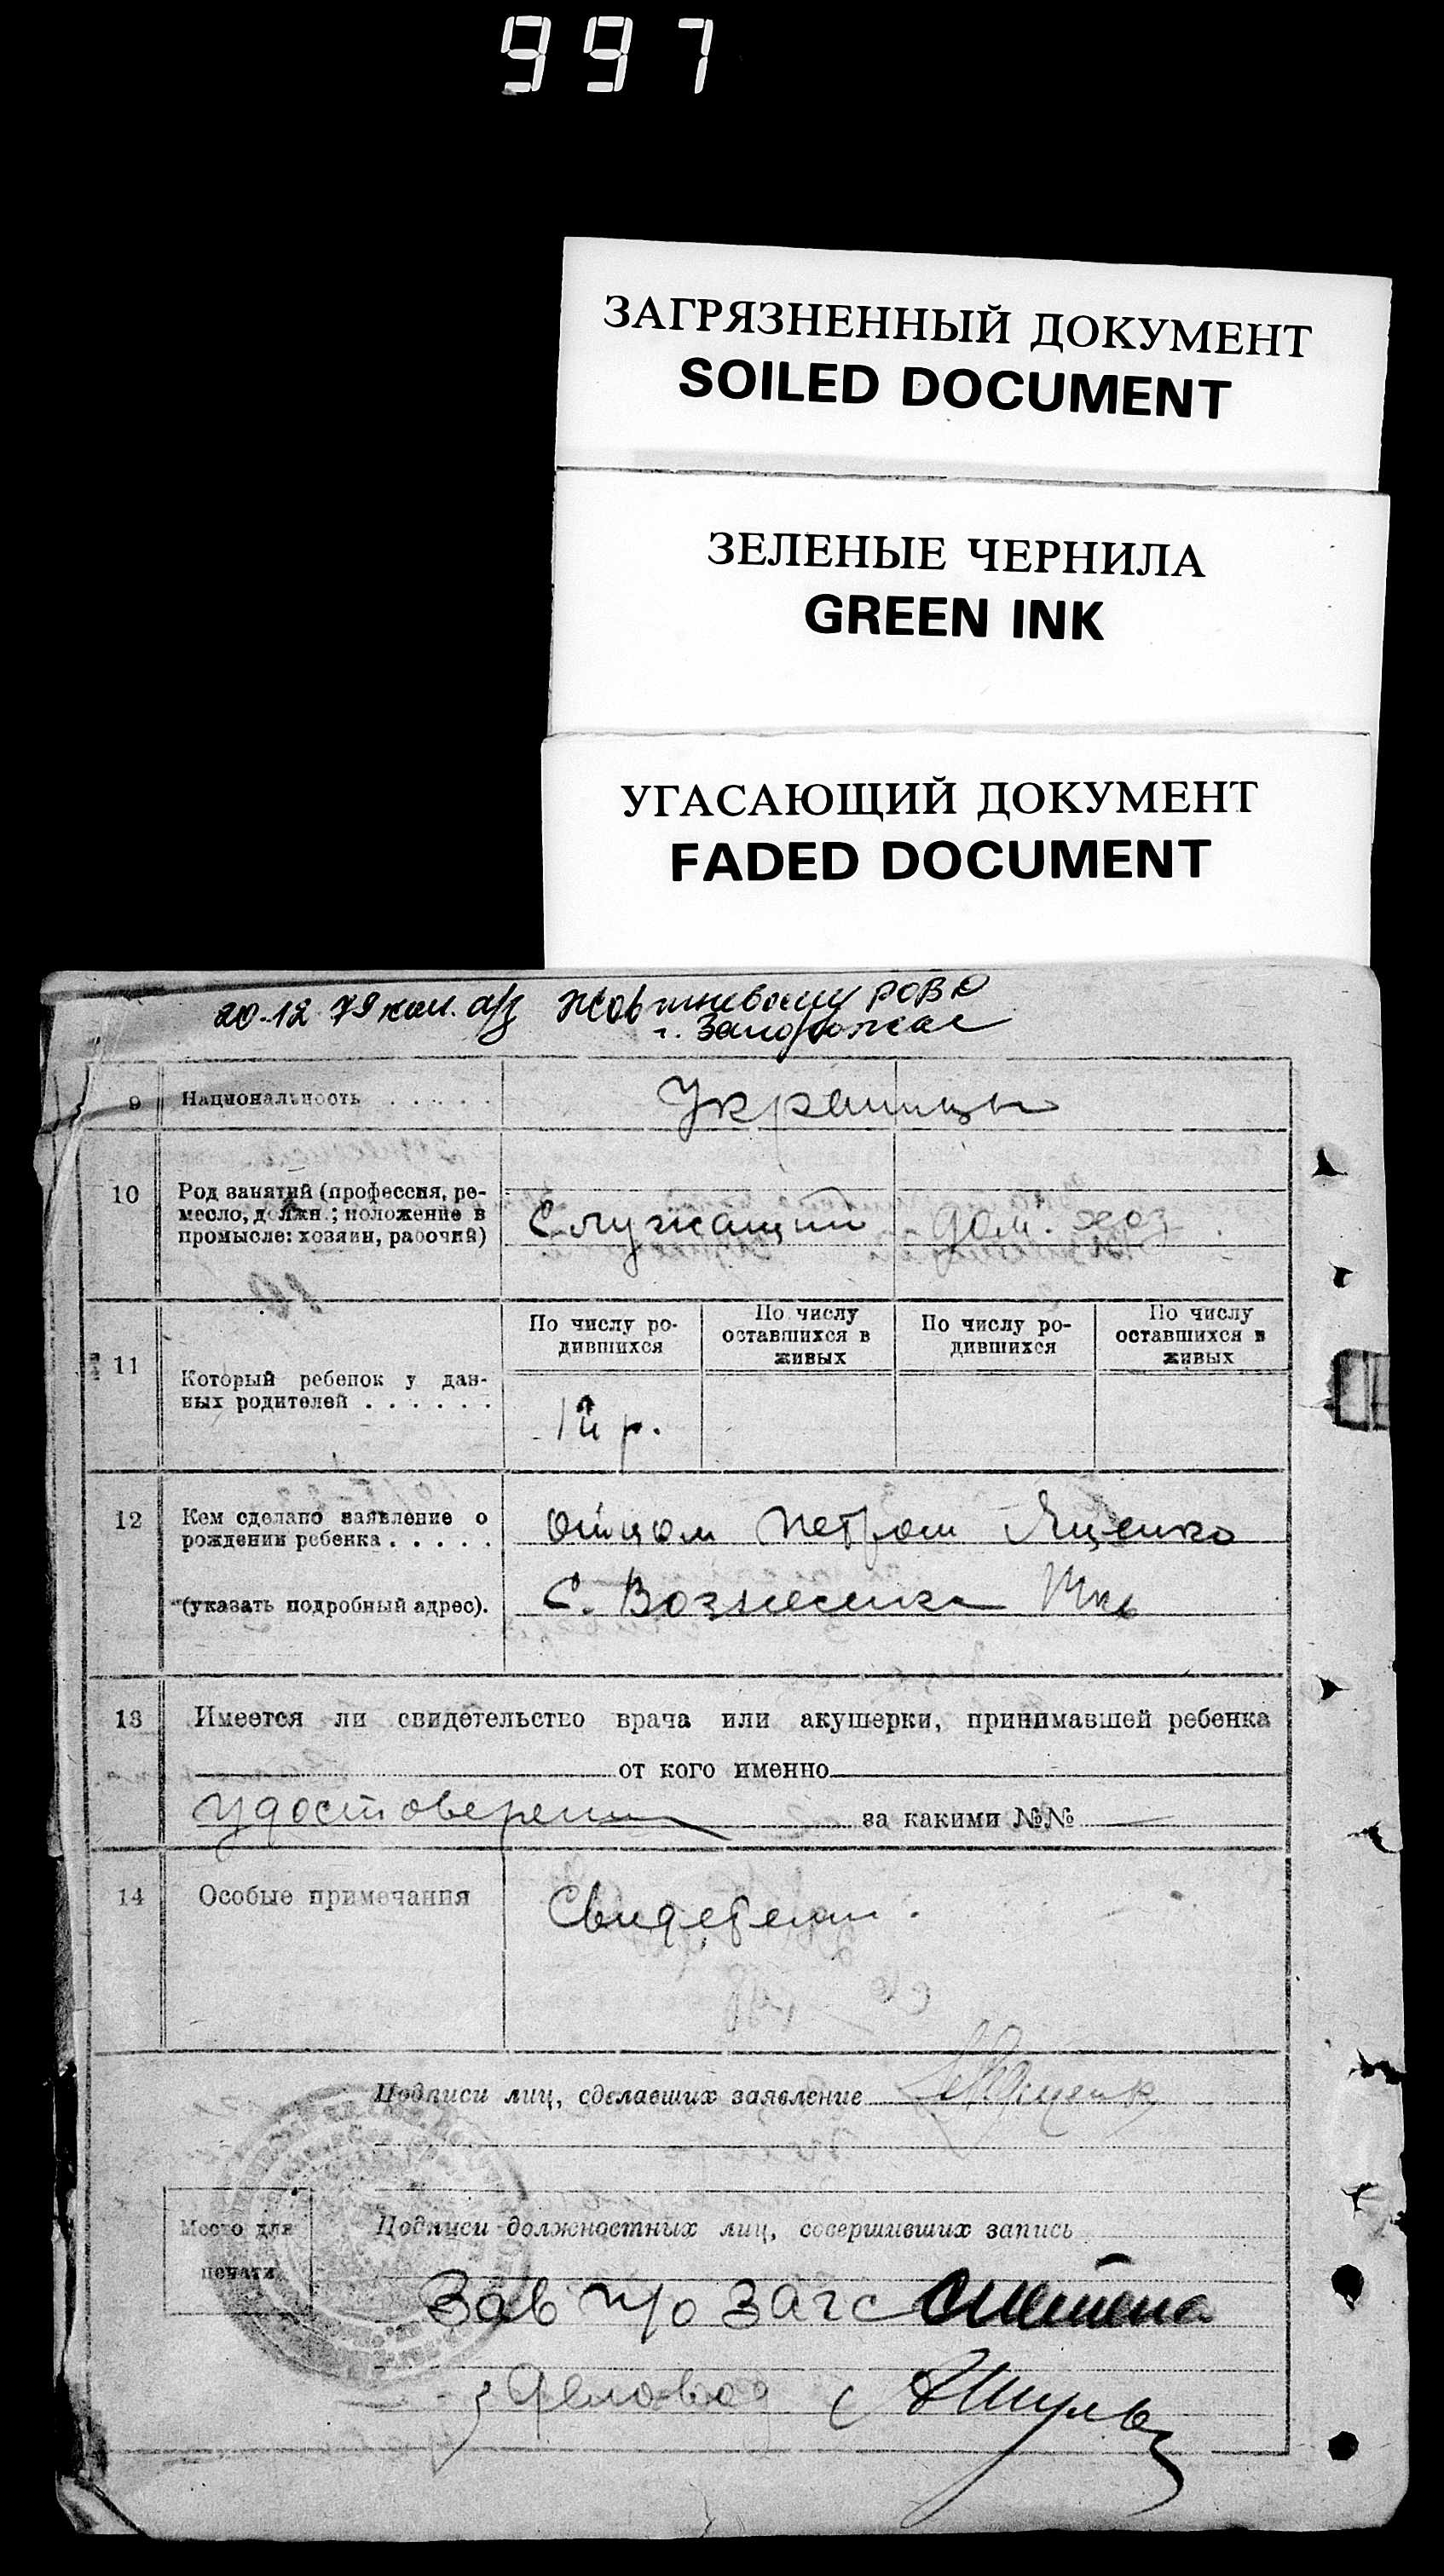 997
ЗАГРЯЗНЕННЫЙ ДОКУМЕНТ
SOILED DOCUMENT
ЗЕЛЕНЫЕ ЧЕРНИЛА
GREEN INK
УГАСАЮЩИЙ ДОКУМЕНТ
FADED DOCUMENT
20-12 79 коп. а/з Жовтневому РОВД
г. Запорожье
9 Национальность . . . . . Украинцы
10 Род занятий (профессия, ре-
месло, должн.; положение в
промысле: хозяин, рабочий)
Служащий дом. хоз
11 Который ребенок у дан-
ных родителей . . . . . .
По числу ро-
дившихся
По числу
оставшихся в
живых
По числу ро-
дившихся
По числу
оставшихся в
живых
1й р.
12 Кем сделано заявление о
рождении ребенка . . . . .
(указать подробный адрес).
отцом Петром Яценко
С. Вознесенка
13 Имеется ли свидетельство врача или акушерки, принимавшей ребенка
от кого именно
удостоверение за какими №№ —
14 Особые примечания Свидетели.
Подписи лиц, сделавших заявление
Место для
печати
Подписи должностных лиц, совершивших запись
Зав п/о Загс
Деловод